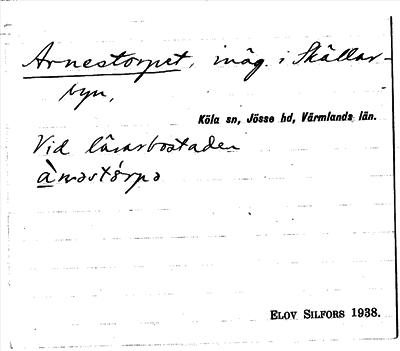 Arnestorpet, inäg. i Skällar-
byn,
Köla sn, Jösse hd, Värmlands län.
Vid lärarbostaden
ElOV SILFORS 1938.